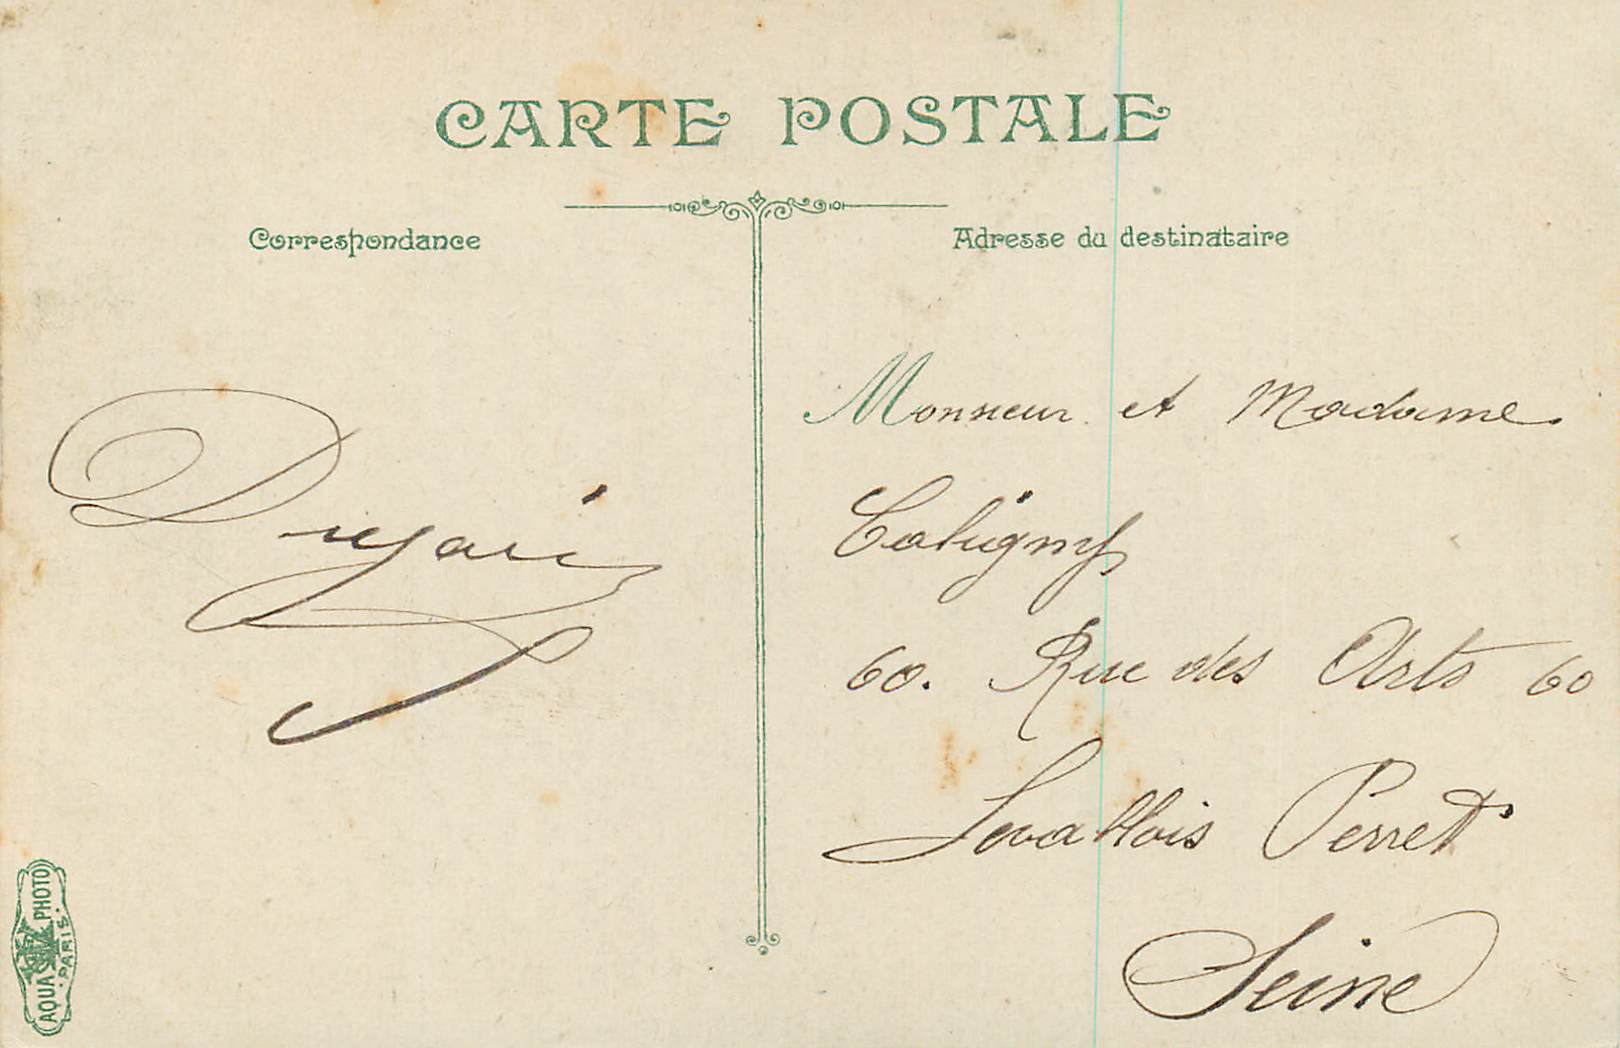 CARTE POSTALE
Correspondance
Adresse du destinataire
Monsieur et Madame
60. Rue des Arts 60
Levallois Perret
Seine
AQUA PHOTO
PARIS